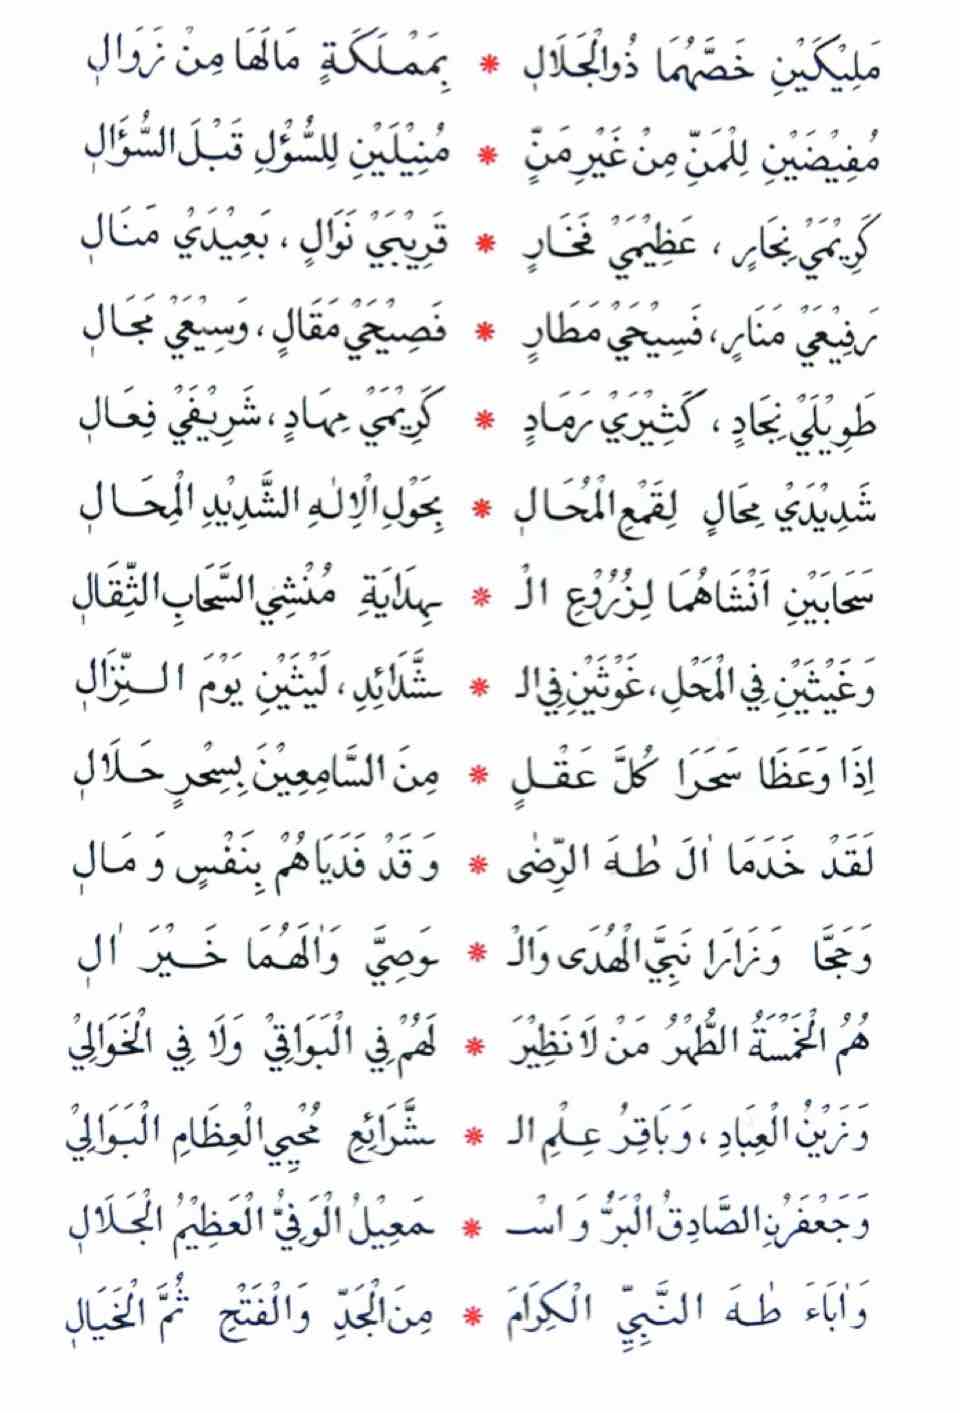 مَلِيْكَيْنِ خَصَّهُمَا ذُوالْجَلَالِ * بِمَمْلَكَةٍ مَالَهَا مِنْ زَوَالِ
مُفِيْضَيْنِ لِلْمَنِّ مِنْ غَيْرِ مَنٍّ * مُنِيْلَيْنِ لِلسُّؤْلِ قَبْلَ السُّؤَالِ
كَرِيْمَيْ نِجَارٍ ، عَظِيْمَيْ فَخَارٍ * قَرِيْبَيْ نَوَالٍ ، بَعِيْدَيْ مَنَالِ
رَفِيْعَيْ مَنَارٍ، فَسِيْحَيْ مَطَارٍ * فَصِيْحَيْ مَقَالٍ ، وَسِيْعَيْ مَجَالِ
طَوِيْلَيْ نِجَادٍ ، كَثِيْرَيْ رَمَادٍ * كَرِيْمَيْ مِهَادٍ ، شَرِيْفَيْ فِعَالِ
شَدِيْدَيْ مِحَالٍ لِقَمْعِ الْمُحَالِ * بِحَوْلِ الْاِلٰهِ الشَّدِيْدِ الْمِحَالِ
سَحَابَيْنِ اَنْشَاهُمَا لِزُرُوْعِ الْـ * ـهِدَايَةِ مُنْشِي السَّحَابِ الثِّقَالِ
وَغَيْثَيْنِ فِي الْمَحْلِ، غَوْثَيْنِ فِي الـ * ـشَّدَائِدِ، لَيْثَيْنِ يَوْمَ الـنِّزَالِ
اِذَا وَعَظَا سَحَرَا كُلَّ عَقْلٍ * مِنَ السَّامِعِيْنَ بِسِحْرٍ حَلَالِ
لَقَدْ خَدَمَا اٰلَ طٰهَ الرِّضٰى * وَقَدْ فَدَيَاهُمْ بِنَفْسٍ وَمَالِ
وَحَجَّا وَزَارَا نَبِيَّ الْهُدَى وَالْـ * ـوَصِيَّ وَاٰلَهُمَا خَيْرَ اٰلِ
هُمُ الْخَمْسَةُ الطُّهْرُ مَنْ لَا نَظِيْرَ * لَهُمْ فِي الْبَوَاقِيْ وَلَا فِي الْخَوَالِيْ
وَزَيْنُ الْعِبَادِ ، وَبَاقِرُ عِلْمِ الـ * ـشَّرَائِعِ مُحْيِي الْعِظَامِ الْبَوَالِيْ
وَجَعْفَرُنِ الصَّادِقُ الْبَرُّ وَاسْـ * ـمَعِيْلُ الْوَفِيُّ الْعَظِيْمُ الْجَلَالِ
وَاٰبَاءَ طٰهَ النَّبِيِّ الْكِرَامَ * مِنَ الْجَدِّ وَالْفَتْحِ ثُمَّ الْخَيَالِ